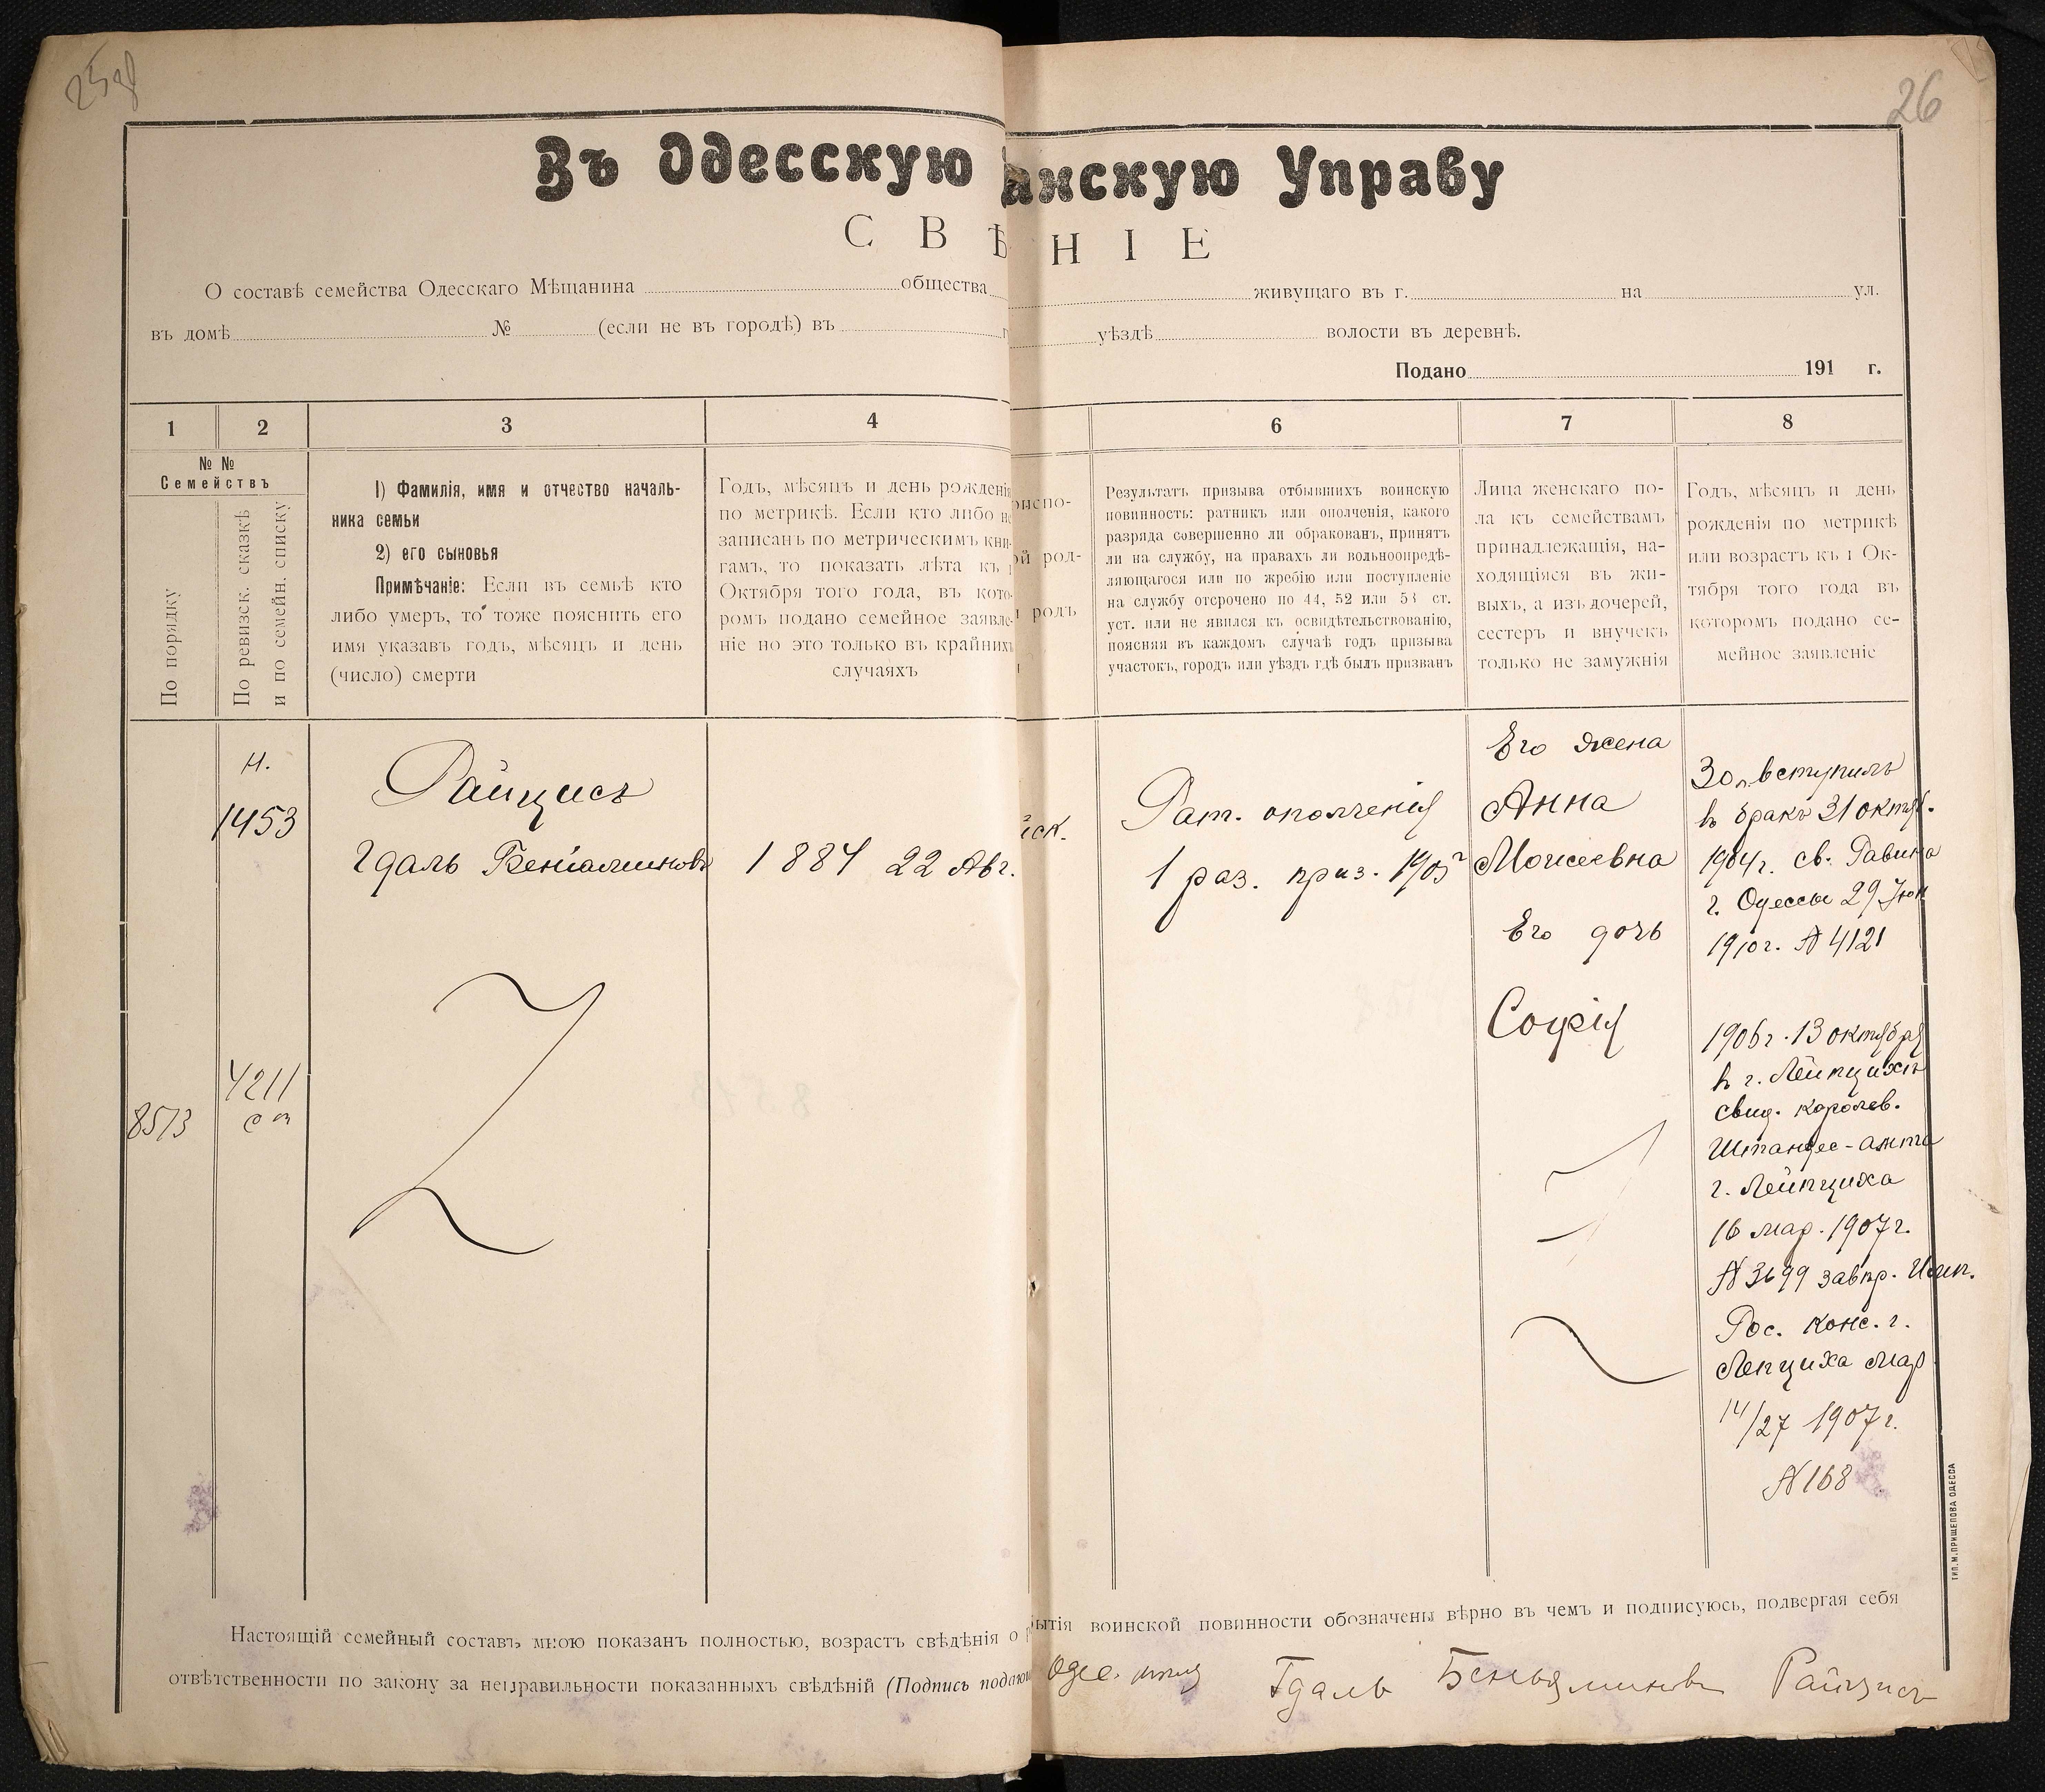 26
Въ Одесскую анскую Управу
СВѢ НІЕ
О составѣ семейства Одесскаго Мѣщанина общества живущаго въ г. на ул.
въ домѣ № (если не въ городѣ) въ уѣздѣ волости въ деревнѣ.
Подано 191 г.
1 2 3 4 6 7 8
№ №
Семействъ
По порядку
По ревизск. сказкѣ
и по семейн. списку
1) Фамилія, имя и отчество началь-
ника семьи
2) его сыновья
Примѣчаніе: Если въ семьѣ кто
либо умеръ, то тоже пояснить его
имя указавъ годъ, мѣсяцъ и день
(число) смерти
Годъ, мѣсяцъ и день рожденія
по метрикѣ. Если кто либо не
записанъ по метрическимъ кни-
гамъ, то показать лѣта къ 1
Октября того года, въ кото-
ромъ подано семейное заявле-
ніе но это только въ крайнихъ
случаяхъ
род-
родъ
Результатъ призыва отбывшихъ воинскую
повинность: ратникъ или ополченія, какого
разряда совершенно ли обракованъ, принятъ
ли на службу, на правахъ ли вольноопредѣ-
ляющагося или по жребію или поступленіе
на службу отсрочено по 44, 52 или 53 ст.
уст. или не явился къ освидѣтельствованію,
поясняя въ каждомъ случаѣ годъ призыва
участокъ, городъ или уѣздъ гдѣ былъ призванъ
Лица женскаго по-
ла къ семействамъ
принадлежащія, на-
ходящіяся въ жи-
выхъ, а изъ дочерей,
сестеръ и внучекъ
только не замужнія
Годъ, мѣсяцъ и день
рожденія по метрикѣ
или возрастъ къ 1 Ок-
тября того года въ
которомъ подано се-
мейное заявленіе
н.
1453
4211
8513
Райцисъ
Гдаль Веніаминовъ
1884 22 Авг.
Рат. ополченія
1 раз. приз. 1905 г
Его жена
Анна
Моисеевна
Его дочь
Софія
30 л вступилъ
въ бракъ 31 октяб.
1904 г. св. Равина
г. Одессы 29 Іюн
1910 г. № 4121
1906 г. 13 октября
в г. Лейпцихъ
свид. королев.
Штандес-амта
г. Лейпциха
16 мар. 1907 г.
№ 3699 завпр. Имп.
Рос. конс. г.
Лепциха мар
14/27 1907 г.
№ 168
Настоящій семейный составъ мною показанъ полностью, возрастъ свѣдѣнія о бытія воинской повинности обозначены вѣрно въ чемъ и подписуюсь, подвергая себя
отвѣтственности по закону за неправильности показанныхъ свѣдѣній (Подпись подающ Одес. Гдаль Беньяминовъ Райцисъ
ТИП. М. ПРИЩЕПОВА ОДЕССА